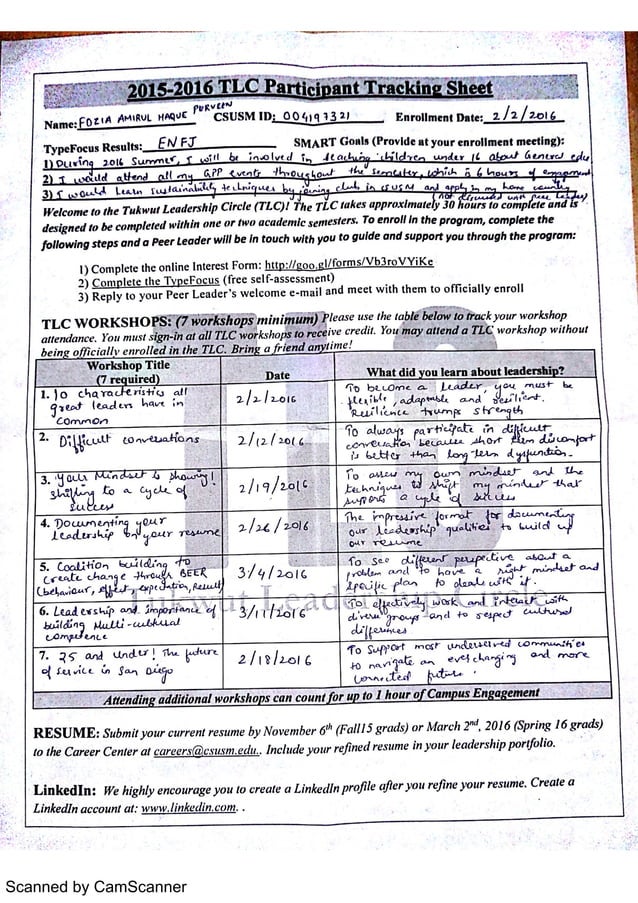 2015-2016 TLC Participant Tracking Sheet
Name: FOZIA AMIRUL HAQUE PURVEEN CSUSM ID: 004197321 Enrollment Date: 2/2/2016
TypeFocus Results: ENFJ SMART Goals (Provide at your enrollment meeting):
1) During 2016 Summer, I will be involved in teaching children under 16 about General edu
2) I would attend all my GPP events throughout the semester, which is 6 hours of
3) I would learn sustainability techniques by joining club in CSUSM and apply in my home country
(not discussed with peer leader)
Welcome to the Tukwut Leadership Circle (TLC)! The TLC takes approximately 30 hours to complete and is
designed to be completed within one or two academic semesters. To enroll in the program, complete the
following steps and a Peer Leader will be in touch with you to guide and support you through the program:
1) Complete the online Interest Form: http://goo.gl/forms/Vb3roVYiKe
2) Complete the TypeFocus (free self-assessment)
3) Reply to your Peer Leader's welcome e-mail and meet with them to officially enroll
TLC WORKSHOPS: (7 workshops minimum) Please use the table below to track your workshop
attendance. You must sign-in at all TLC workshops to receive credit. You may attend a TLC workshop without
being officially enrolled in the TLC. Bring a friend anytime!
Workshop Title
(7 required)
Date
What did you learn about leadership?
1. 10 characteristics all
great leaders have in
common
2/2/2016
To become a leader, you must be
flexible, adaptable and resilient.
Resilience trumps strength
2. Difficult conversations
2/12/2016
To always participate in difficult
conversation because short term discomfort
is better than long-term dysfunction.
3. Your Mindset is showing!
shifting to a cycle of
success
2/19/2016
To assess my own mindset and the
techniques to shift my mindset that
supports a cycle of success
4. Documenting your
leadership on your resume
2/26/2016
The impressive format for documenting
our leadership qualities to build up
our resume
5. Coalition building to
create change through BEER
(behaviour, effect, expectation, Result)
3/4/2016
To see different perspective about a
problem and to have a right mindset and
specific plan to deal with it.
6. Leadership and importance of
building Multi-cultural
competence
3/11/2016
To effectively work and interact with
diverse groups and to respect cultural
differences
7. 25 and Under! The future
of service in San Diego
2/18/2016
To support most underserved communities
to navigate an everchanging and more
connected future.
Tukwut Leadership Circle
Attending additional workshops can count for up to 1 hour of Campus Engagement
RESUME: Submit your current resume by November 6th (Fall15 grads) or March 2nd, 2016 (Spring 16 grads)
to the Career Center at careers@csusm.edu.. Include your refined resume in your leadership portfolio.
LinkedIn: We highly encourage you to create a LinkedIn profile after you refine your resume. Create a
LinkedIn account at: www.linkedin.com. .
Scanned by CamScanner